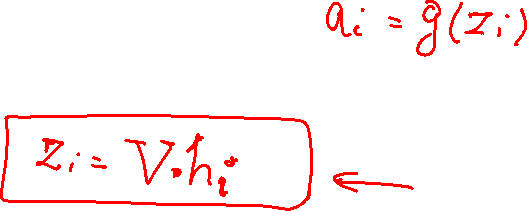 a_i = g(z_i)
z_i = V·h_i